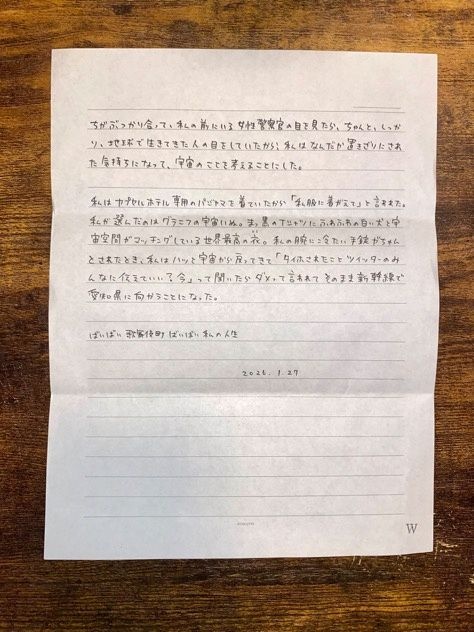 ちがぶつかり合って、私の前にいる女性警察官の目を見たら、ちゃんと、しっか
り、地球で生きてきた人の目をしていたから、私はなんだか置きざりにされ
た気持ちになって、宇宙のことを考えることにした。
私はカプセルホテル専用のパジャマを着ていたから「私服に着がえて」と言われた。
私が選んだのはグラニフの宇宙いぬ。まっ黒のTシャツにふわふわの白い犬と宇
宙空間がマッチングしている世界最高の衣。私の腕に冷たい手錠がちゃん
とされたとき、私はハッと宇宙から戻ってきて「タイホされたことツイッターのみ
んなに伝えていい?今」って聞いたらダメって言われてそのまま新幹線で
愛知県に向かうことになった。
ばいばい歌舞伎町 ばいばい私の人生
2026.1.27
W